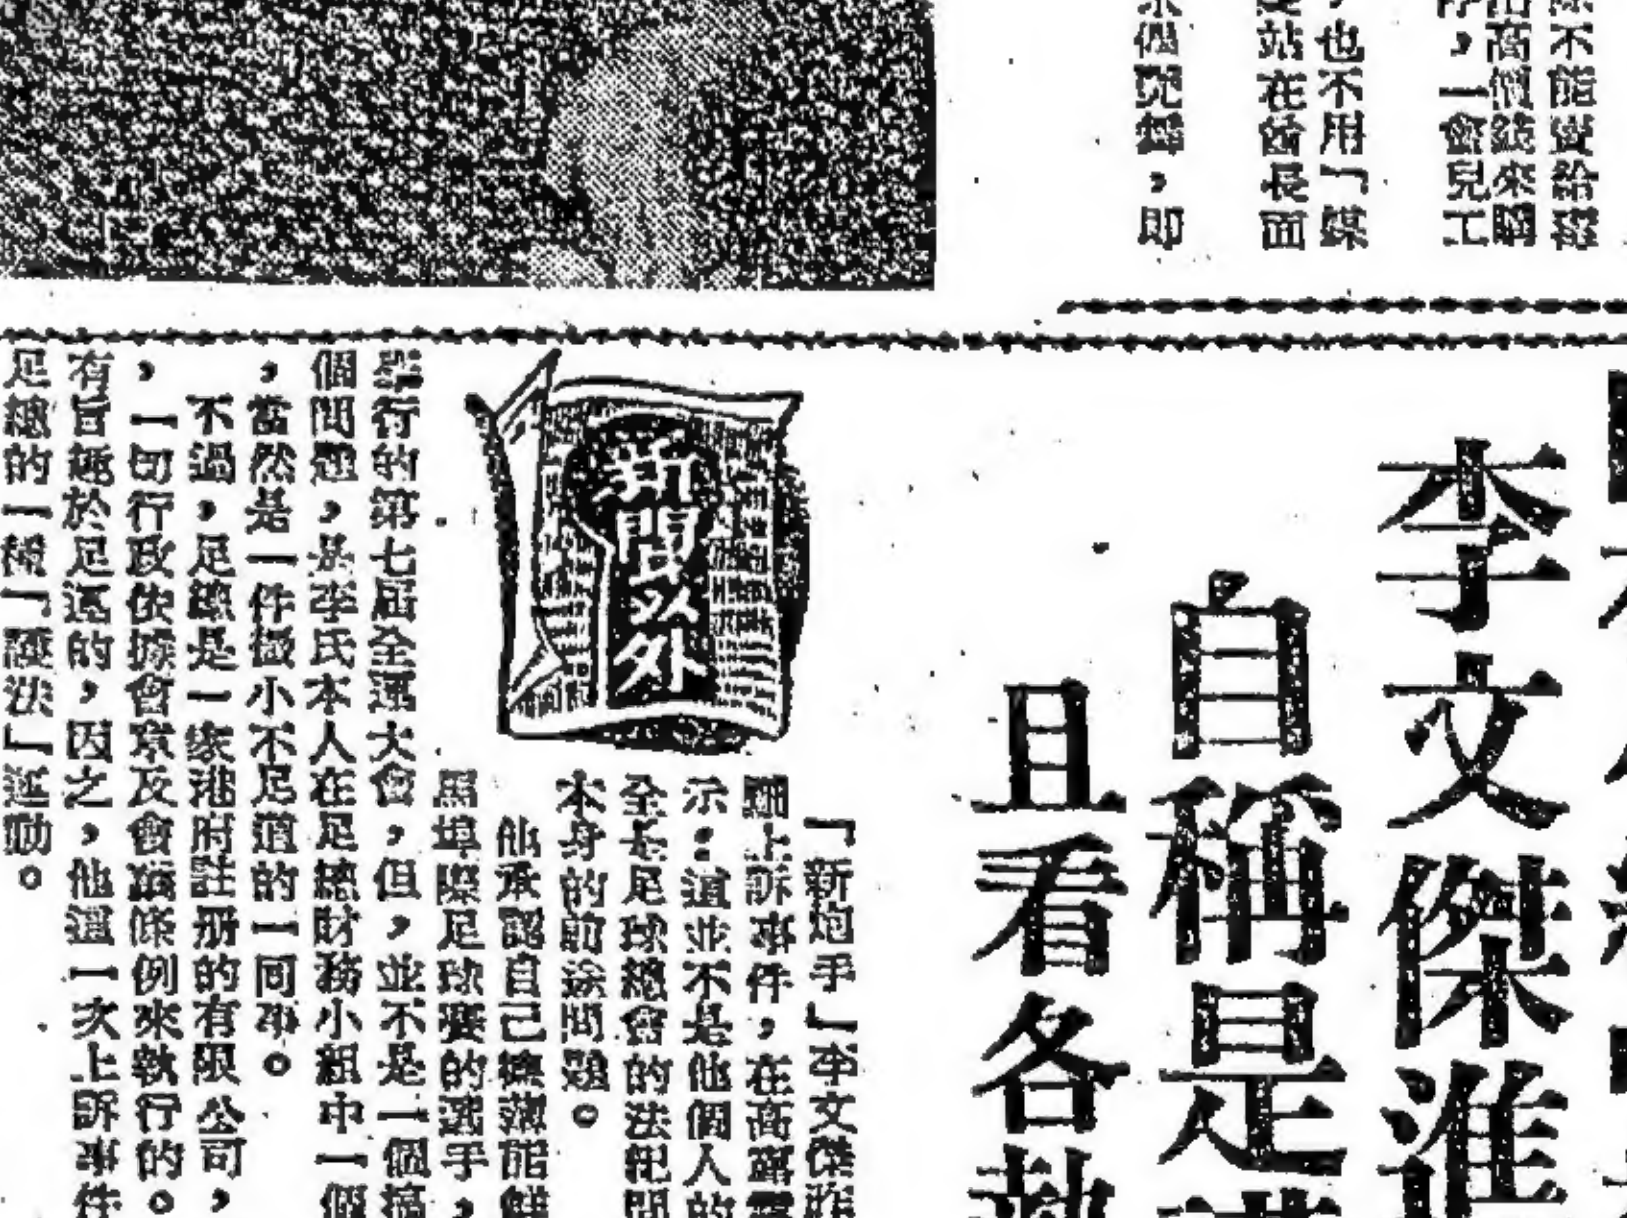 除不能賣給
高價錢來購
，一會兒工
，也不用「媒
站在酋長面
，即
李文傑准
自稱是
且看各
新聞以外
「新炮手」李文傑昨
上訴事件，在高
示，這並不是他個人的
全是足球總會的法紀問
本身的前途問題。
他承認自己撫薄能鮮
馬埠際足球賽的選手，
舉行的第七屆全運大會，但，並不是一個搞
個問題，是李氏本人在足總財務小組中一個
，當然是一件微小不足道的一回事。
不過，足總是一家港府註册的有限公司，
，一切行政依據會章及會議條例來執行的。
有旨趣於足運的，因之，他這一次上訴事件
足總的一種「護法」運動。